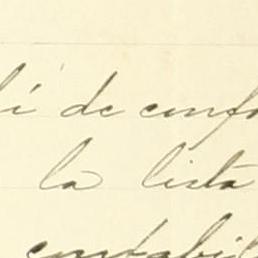 de confo
la lista
contabil